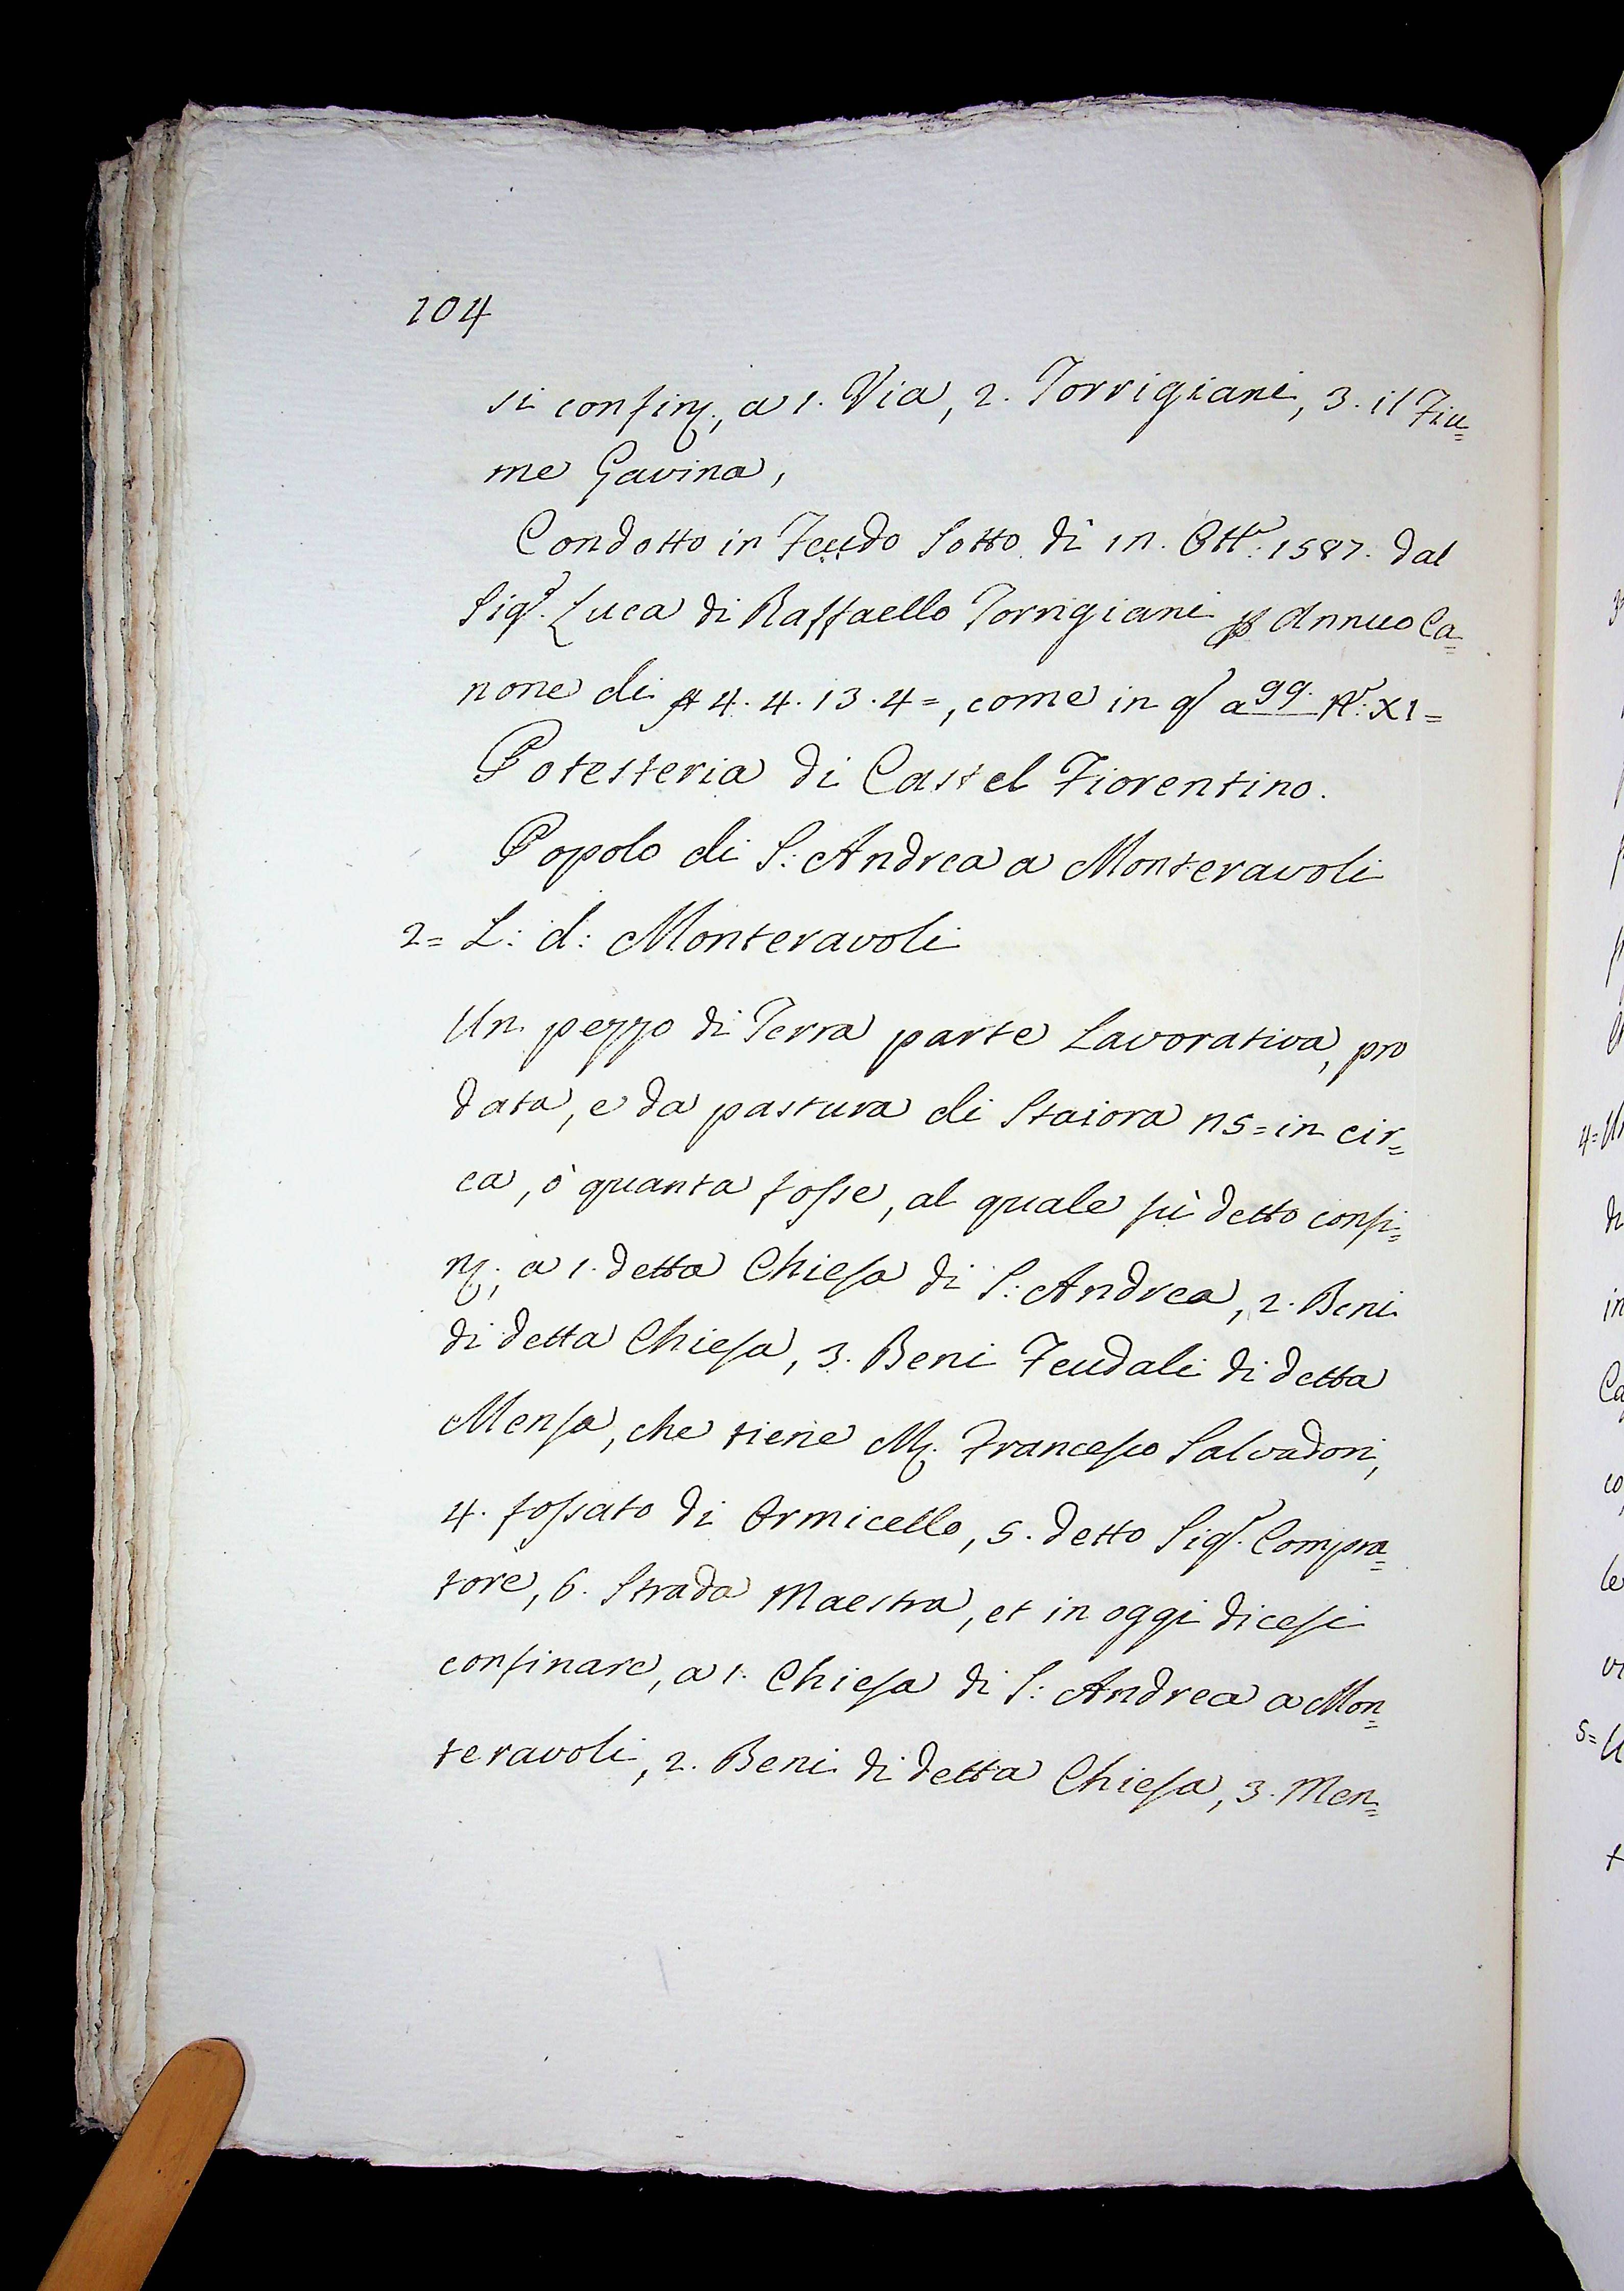 104
si confinȷ., a 1. Via, 2. Torrigiani, 3. il Fiu=
me Gavina,
Condotto in Feudo Sotto dì 1n. Ott.e: 1587. dal
Sig.r Luca di Raffaello Torrigiani p Annuo Ca=
none di 4. 4. 13. 4=, come in q agg. N.o: XI=
Potesteria di Castel Fiorentino.
Popolo di S: Andrea a Monteravoli
2= L: d: Monteravoli
Un pezzo di Terra parte Lavorativa, pro
data, e da pastura di Staiora n5= in cir=
ca, ò quanta fosse, al quale fù detto confi=
nȷ., a 1. detta Chiesa di S: Andrea, 2. Beni
di detta Chiesa, 3. Beni Feudali di detta
Mensa, che tiene Mȷ. Francesco Salvadori,
4. fossato di Ormicello, 5. detto Sig.r Compra=
tore, 6. Strada Maestra, et in oggi dicesi
confinare, a 1. Chiesa di S: Andrea a Mon=
teravoli, 2. Beni di detta Chiesa, 3. Men=